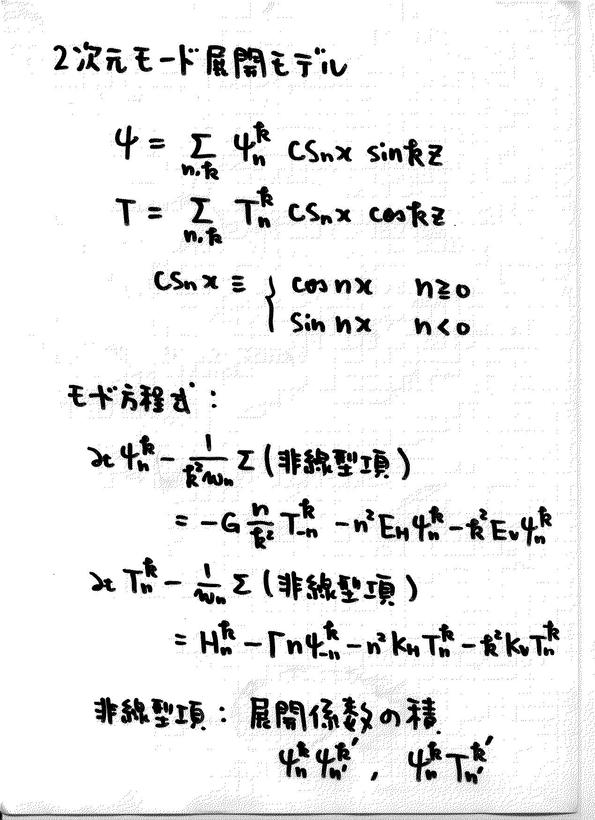 2次元モード展開モデル
ψ = Σ_{n,k} ψ_n^k cs_n x sin kz
T = Σ_{n,k} T_n^k cs_n x cos kz
cs_n x ≡ { cos nx  n≧0
sin nx  n<0
モード方程式:
∂t ψ_n^k − 1/(k² w_n) Σ (非線型項)
= −G n/k² T_{-n}^k − n² E_H ψ_n^k − k² E_V ψ_n^k
∂t T_n^k − 1/w_n Σ (非線型項)
= H_n^k − Γn ψ_{-n}^k − n² K_H T_n^k − k² K_V T_n^k
非線型項: 展開係数の積
ψ_n^k ψ_{n'}^{k'} , ψ_n^k T_{n'}^{k'}